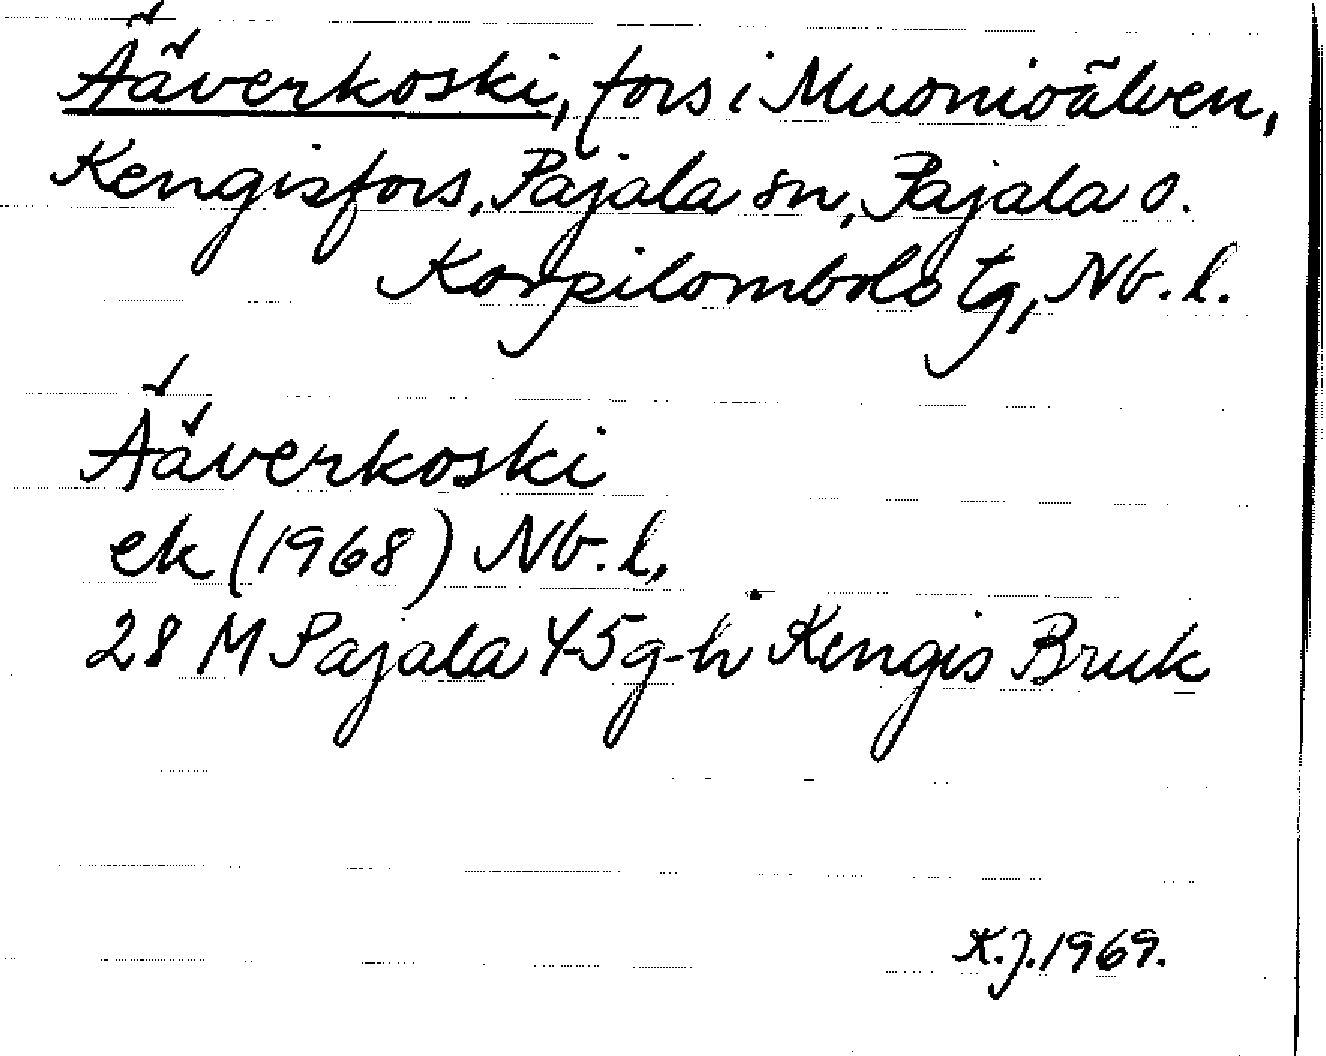 Ääverkoski, fors i Muonioälven,
Kengisfors, Pajala sn, Pajala o.
Korpilombolo tg, Nb. l.
Ääverkoski
ek (1968) Nb. l,
28 M Pajala 45g-h Kengis Bruk
K.J. 1969.